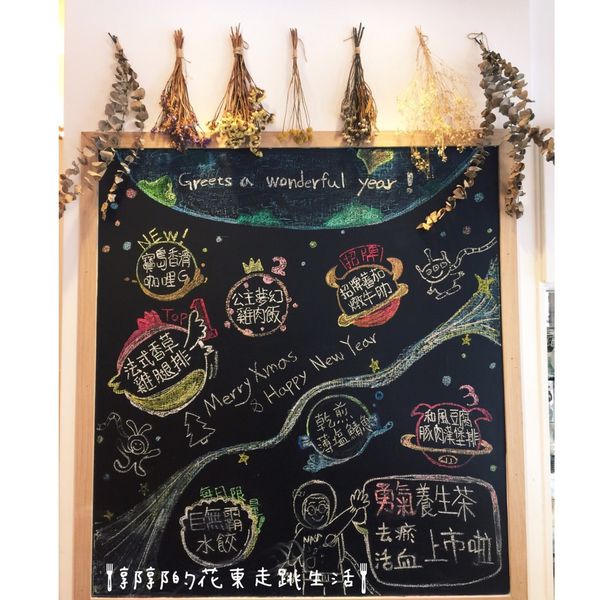 Greets a wonderful year!
NEW!
寶島香濃
咖哩G
2
公主夢幻
雞肉飯
招牌
招牌蕃茄
燉牛肋
Top 1
法式香草
雞腿排
Merry Xmas
& Happy New Year
乾煎
薄塩鯖魚
3
和風豆腐
豚肉漢堡排
每日限量
巨無霸
水餃
勇氣養生茶
去瘀
活血
上市啦
郭郭的花東走跳生活